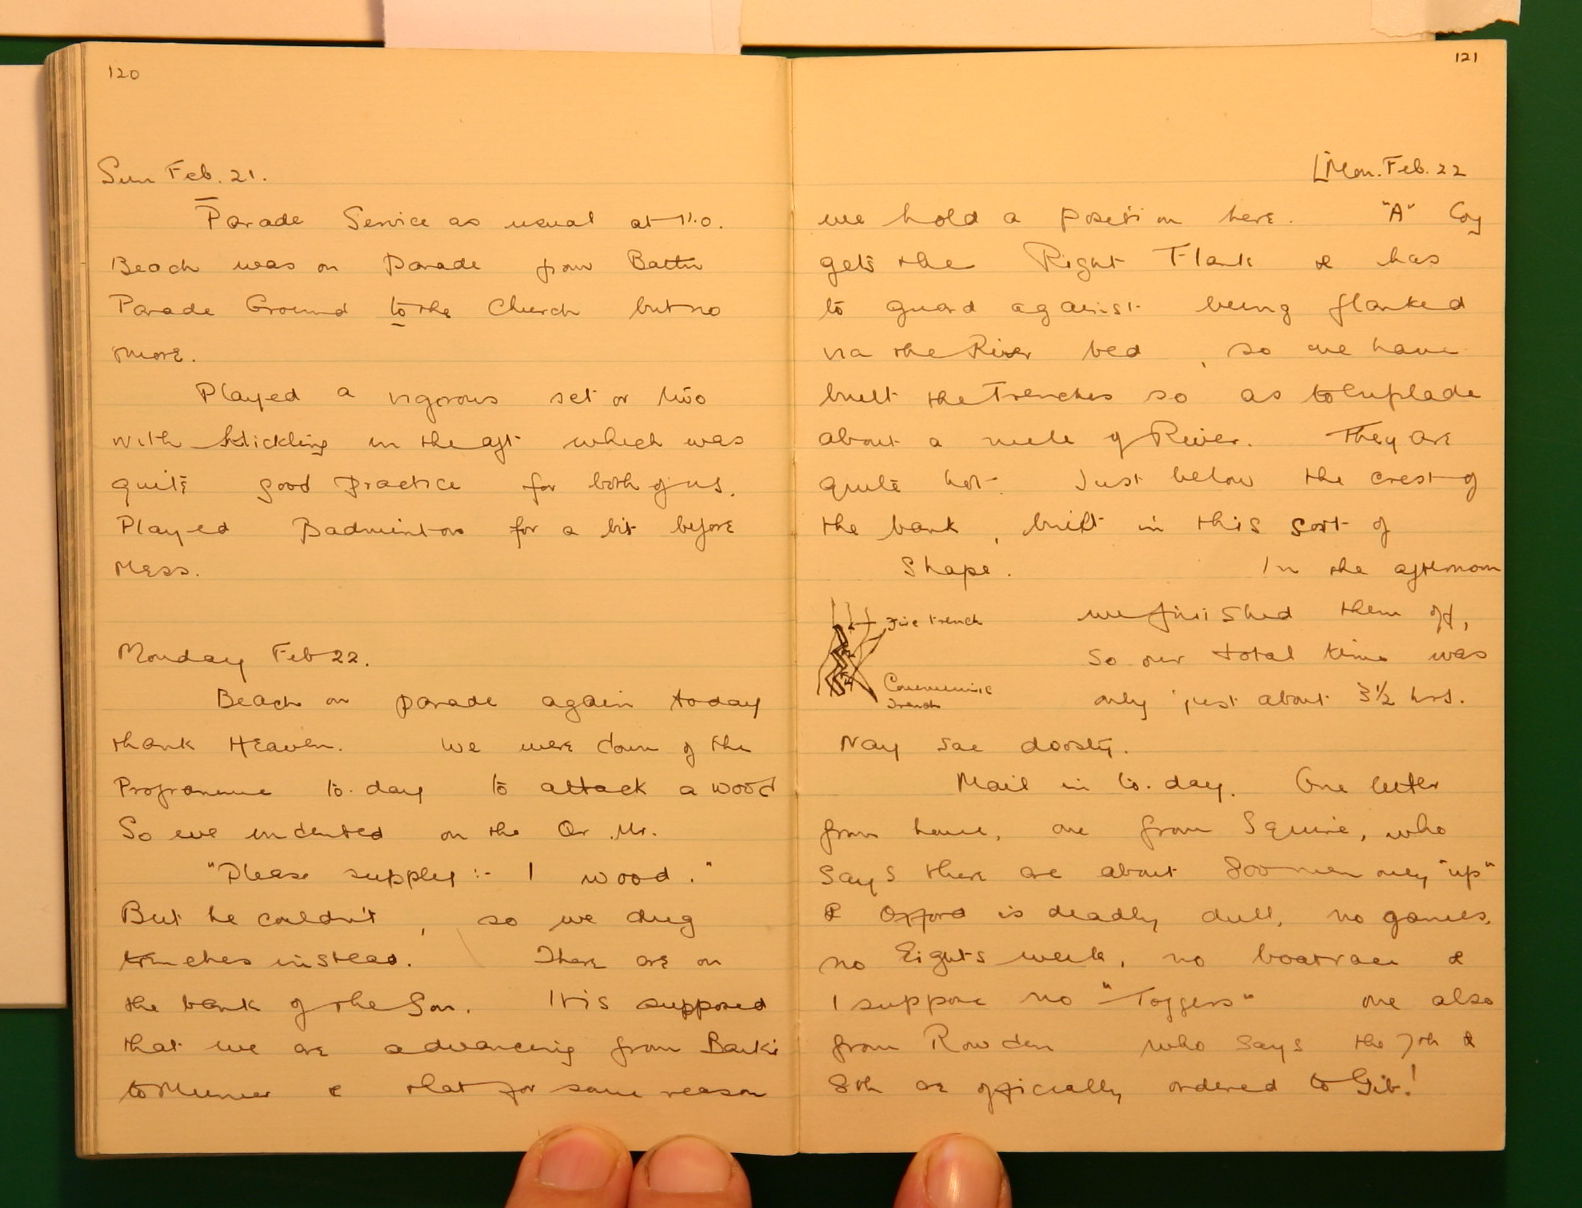 120
Sun Feb. 21.
Parade Service as usual at 11.0.
Beach was on Parade from Battn
Parade Ground to the Church but no
more.
Played a vigorous set or two
with Stickling in the aft which was
quite good practice for both of us.
Played Badminton for a bit before
Mess.
Monday Feb 22.
Beach on parade again today
thank Heaven. We were down of the
Programme to-day to attack a wood
So we indented on the Qr. Mr.
"Please supply :- 1 wood."
But he couldn't, so we dug
trenches instead. There are on
the bank of the Son. It is supposed
that we are advancing from Barki
to & that for some reason
121
[Mon. Feb. 22
we hold a position here. "A" Coy
gets the Right Flank & has
to guard against being flanked
via the River bed, so we have
built the Trenches so as to enfilade
about a mile of River. They are
quite hot. Just below the crest of
the bank, built in this sort of
Shape. In the afternoon
Fire trench
we finished them off,
so our total time was
Communic
Trench
only just about 3½ hrs.
Nay sae doosty.
Mail in to-day. One letter
from home, one from Squire, who
says there are about 800 men only "up"
& Oxford is deadly dull, no games,
no Eights week, no boatrace &
I suppose no "Toggers" one also
from Rowden who says the 7th &
8th are officially ordered to Gib!